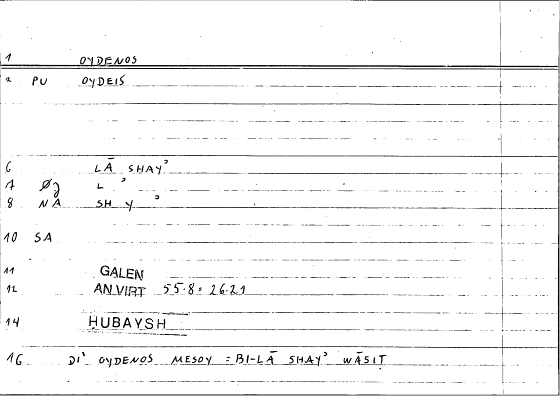 1 OYDENOS
2 PU OYDEIS
6 LĀ SHAYʾ
7 L ʾ
8 NA SH Y ʾ
10 SA
11 GALEN
12 AN VIRT 55.8 = 26.21
14 HUBAYSH
16 DIʾ OYDENOS MESOY = BI-LĀ SHAYʾ WĀSIṬ